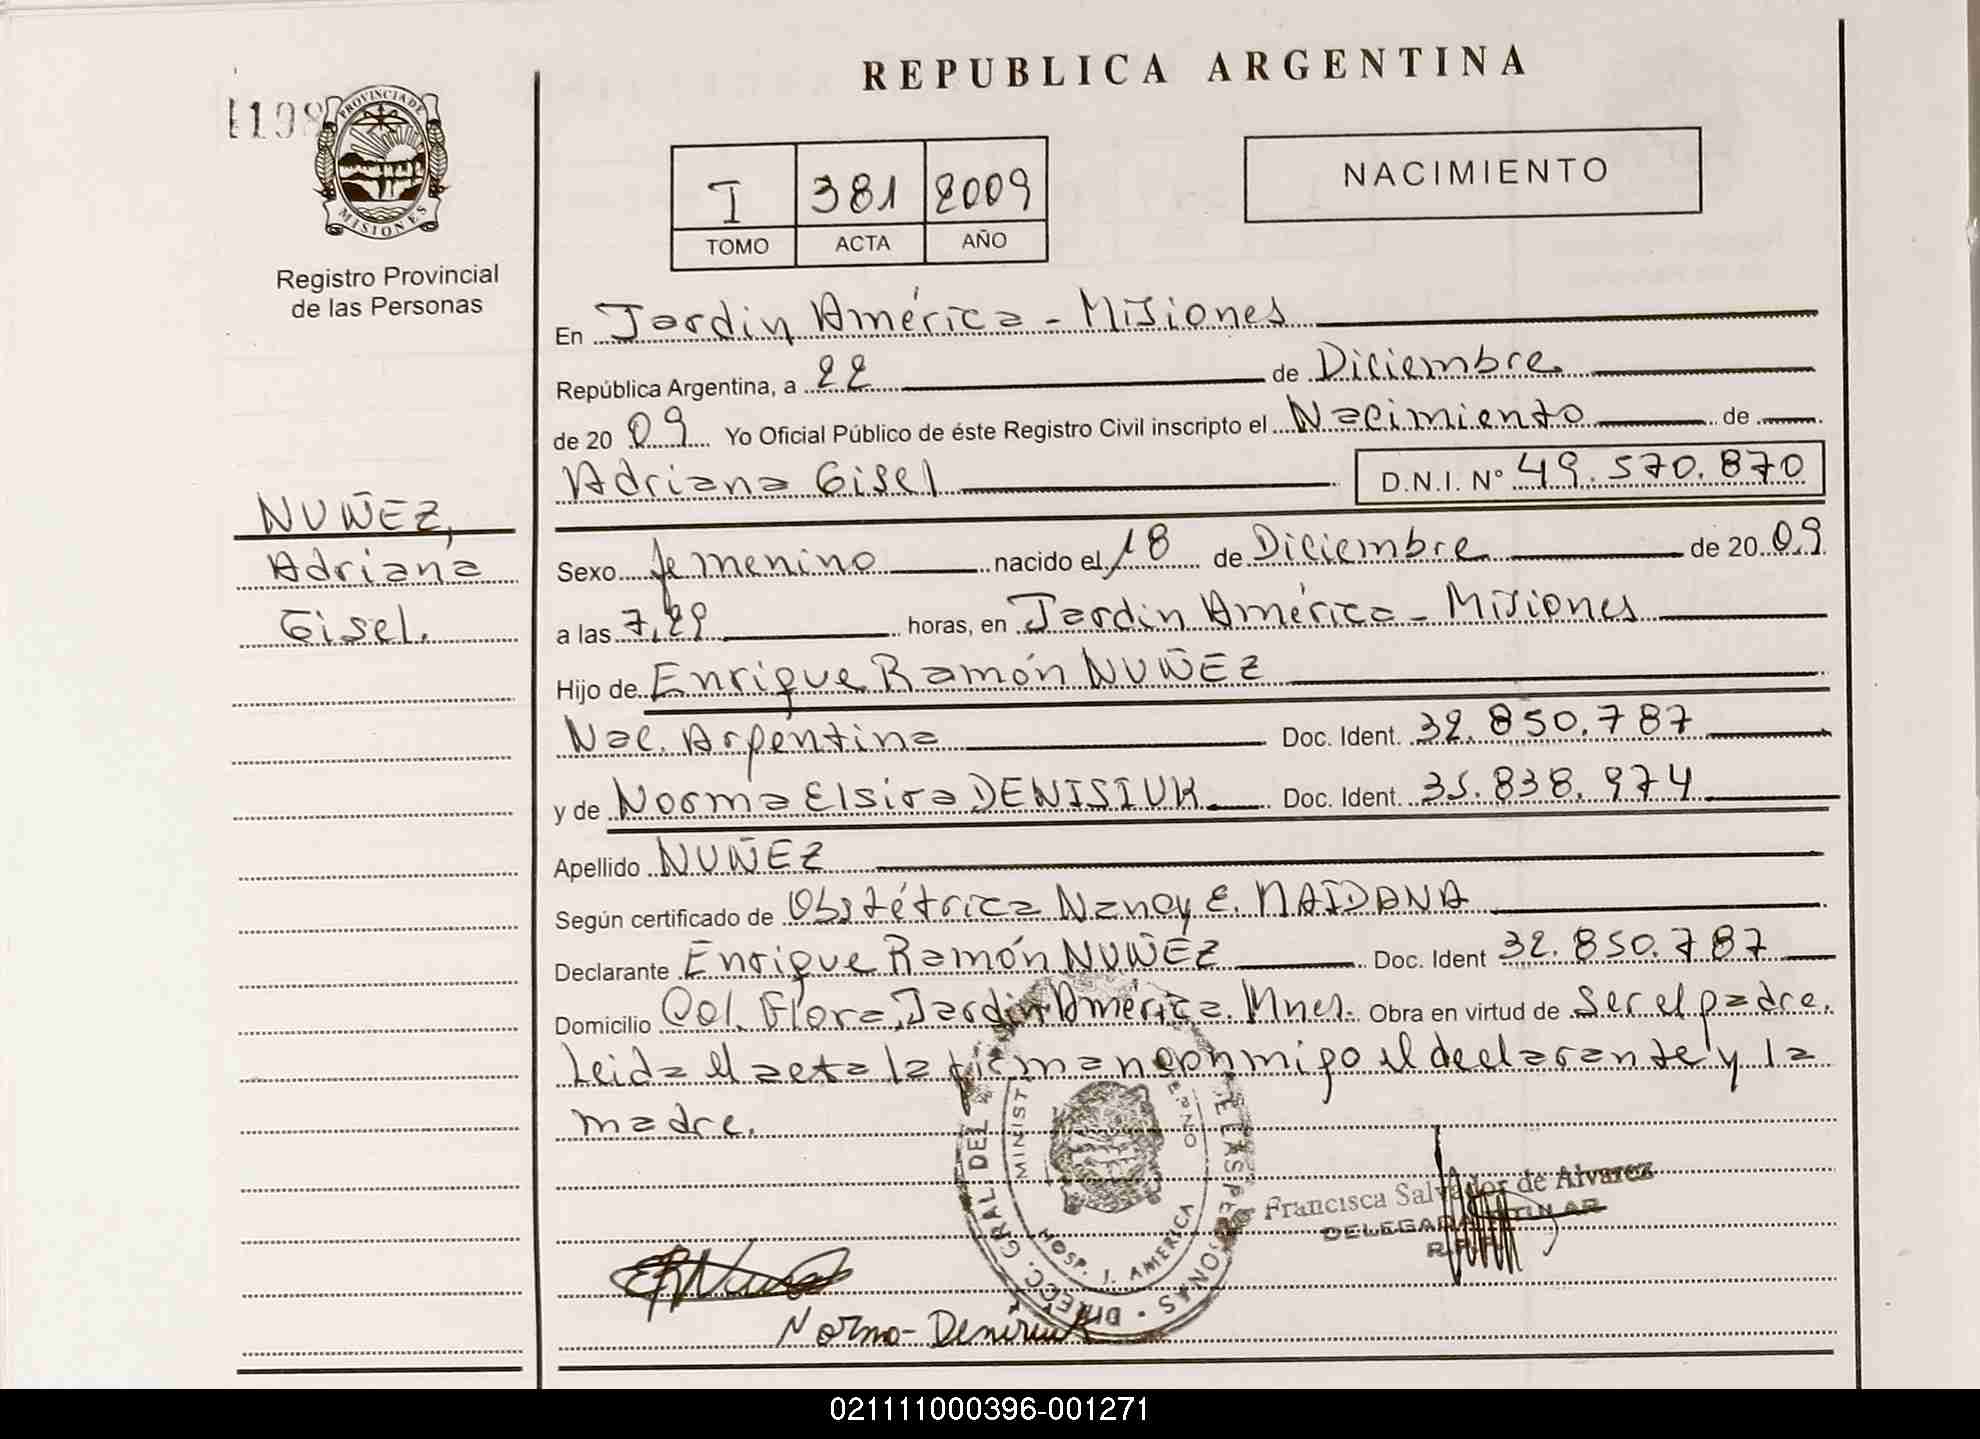 REPUBLICA ARGENTINA
1198
PROVINCIA DE
MISIONES
Registro Provincial
de las Personas
I 381 2009
TOMO ACTA AÑO
NACIMIENTO
NUÑEZ,
Adriana
Gisel.
En Jardin América - Misiones
República Argentina, a 22 de Diciembre
de 2009 Yo Oficial Público de éste Registro Civil inscripto el Nacimiento de
Adriana Gisel D.N.I. Nº 49.570.870
Sexo femenino nacido el 18 de Diciembre de 2009
a las 7,29 horas, en Jardin América - Misiones
Hijo de Enrique Ramón NUÑEZ
Nac. Argentina Doc. Ident. 32.850.787
y de Norma Elsira DENISIUK Doc. Ident. 35.838.974
Apellido NUÑEZ
Según certificado de Obstétrica Nancy E. MAIDANA
Declarante Enrique Ramón NUÑEZ Doc. Ident 32.850.787
Domicilio Col. Flora, Jardin América. Mnes. Obra en virtud de Ser el padre.
Leida el acta la firman conmigo el declarante y la
madre.
DIRECC. GRAL DEL DE LAS PERSONAS
MINIST ERNO
HOSP. J. AMERICA
Francisca Salvador de Alvarez
DELEGADA TITULAR
R.P.P.
Norma - Denisiuk
021111000396-001271